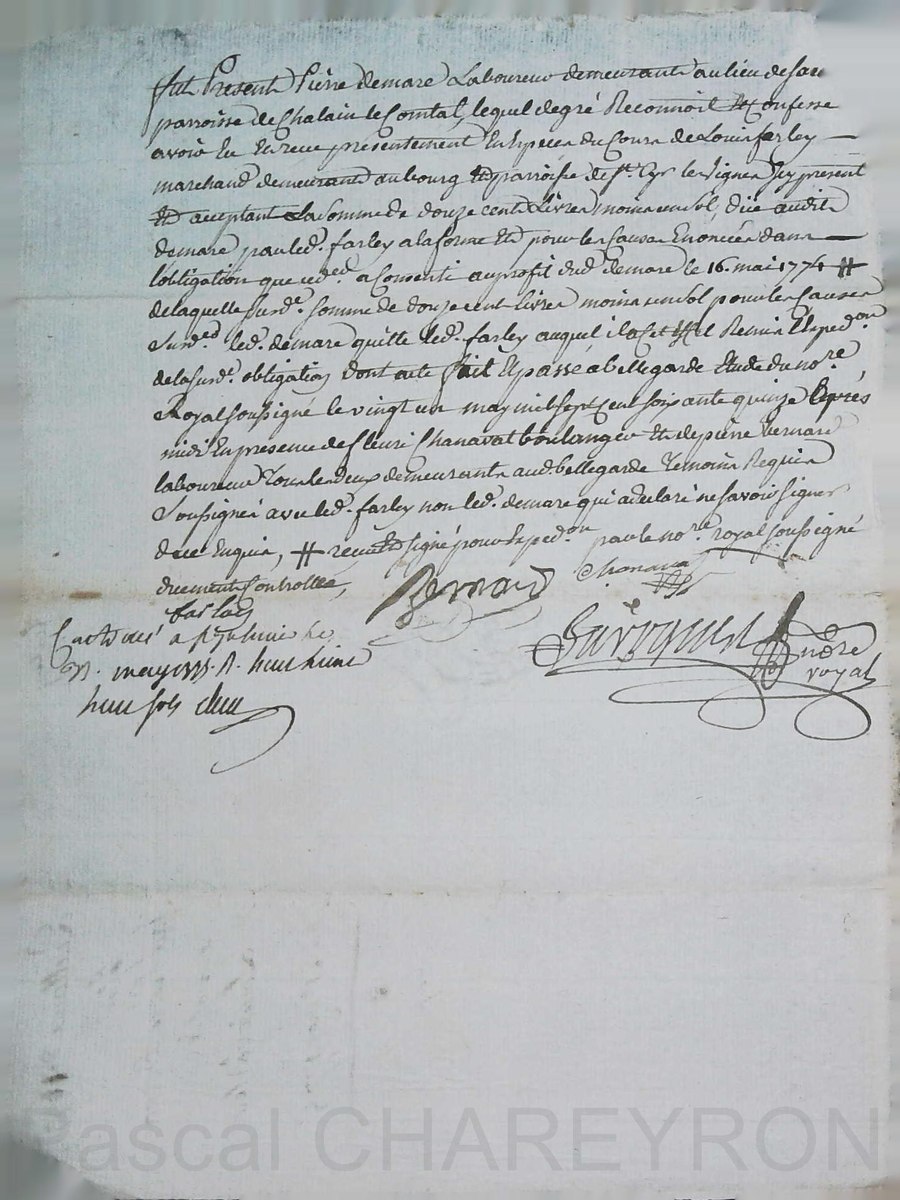 fut Present Pierre demare Laboureur demeurant au lieu de
parroisse de Chalain le Comtal, lequel de gré Reconnoit et Confesse
avoir Eu Et receu presentement En Especes du Cours de Louis farley
marchand demeurant au bourg et parroisse de st. Cyr les vignes Icy present
et acceptant La Somme de douze cents Livres moins un sol, düe audit
demare par led. farley a la forme et pour les Causes Enoncées dans
l'obligation que led. a Consenti au profit dud. demare le 16. mai 1774 #
de laquelle susd. Somme de douze cent Livres moins un sol pour les Causes
Susd. led. demare quitte led. farley auquel il a Remis L'Exped.on
de la susd. obligation dont acte fait Et passé a bellegarde Etude du no.re
Royal soussigné le vingt un may mil sept cent soixante quinze après
midi En presence de fleuri Chanavat boulanger et de pierre bernard
laboureur Tous les deux demeurants aud. bellegarde Temoins Requis
Soussignés avec led. farley non led. demare qui a declaré ne savoir signer
de ce Enquis, # receu et signé pour Exped.on par le no.re royal soussigné
duement Controllée,
farlay
Bernard
Chanavat
no.re
royal
a st
may 1775. R. huit livres
huit sols
Pascal CHAREYRON